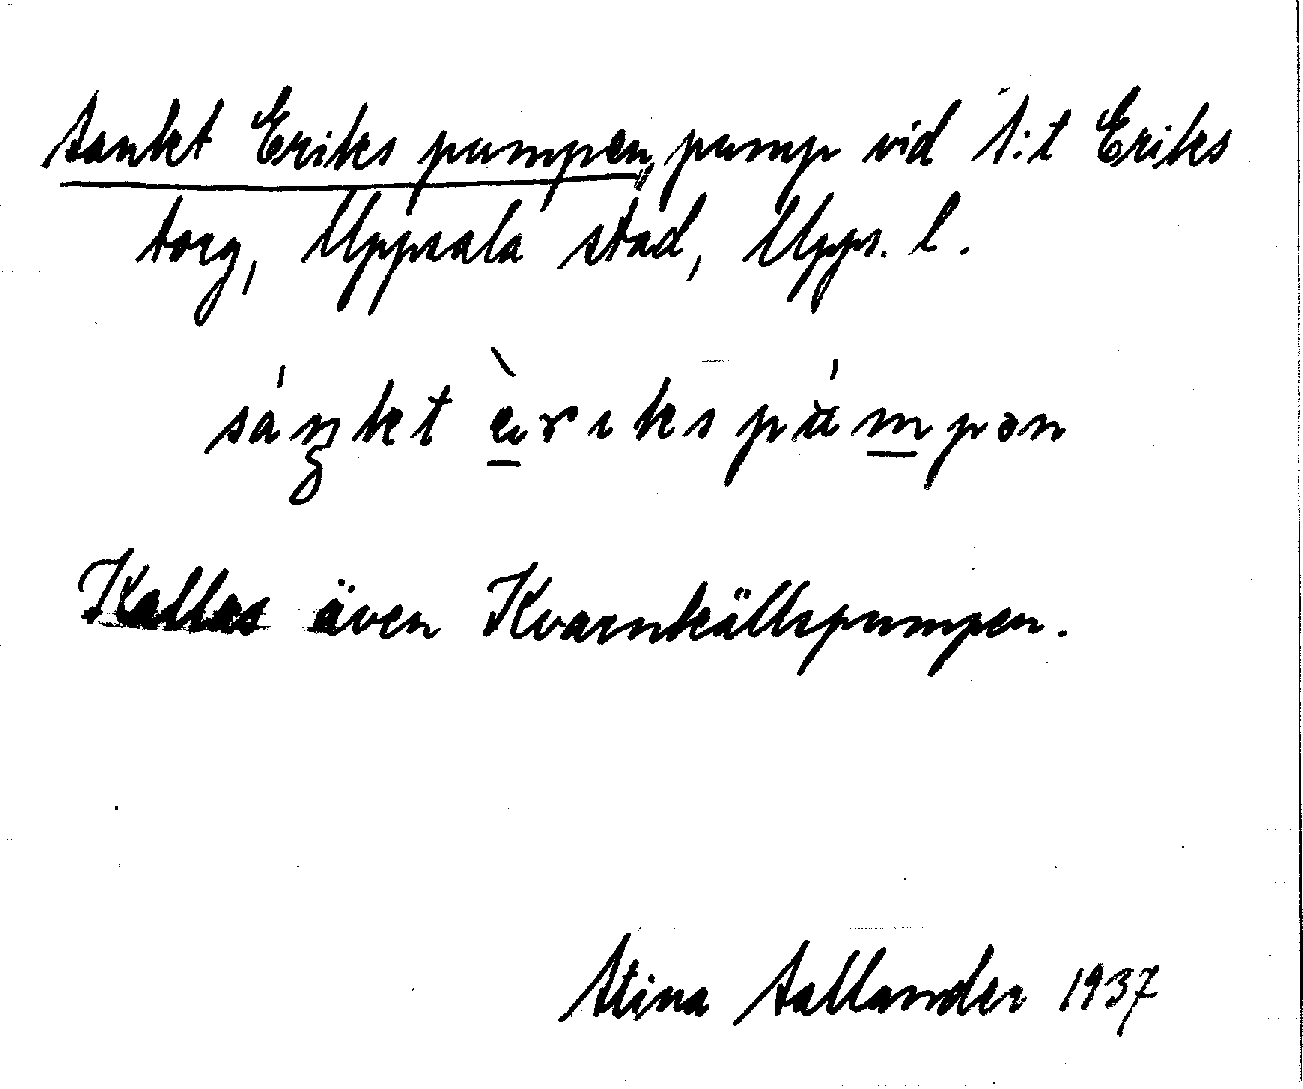 Sankt Eriks pumpen, pump vid S:t Eriks
torg, Uppsala stad, Upps. l.
sáŋkt èrıkspu̇́mpən
Kallas även Kvarnkällspumpen.
Stina Sallander 1937